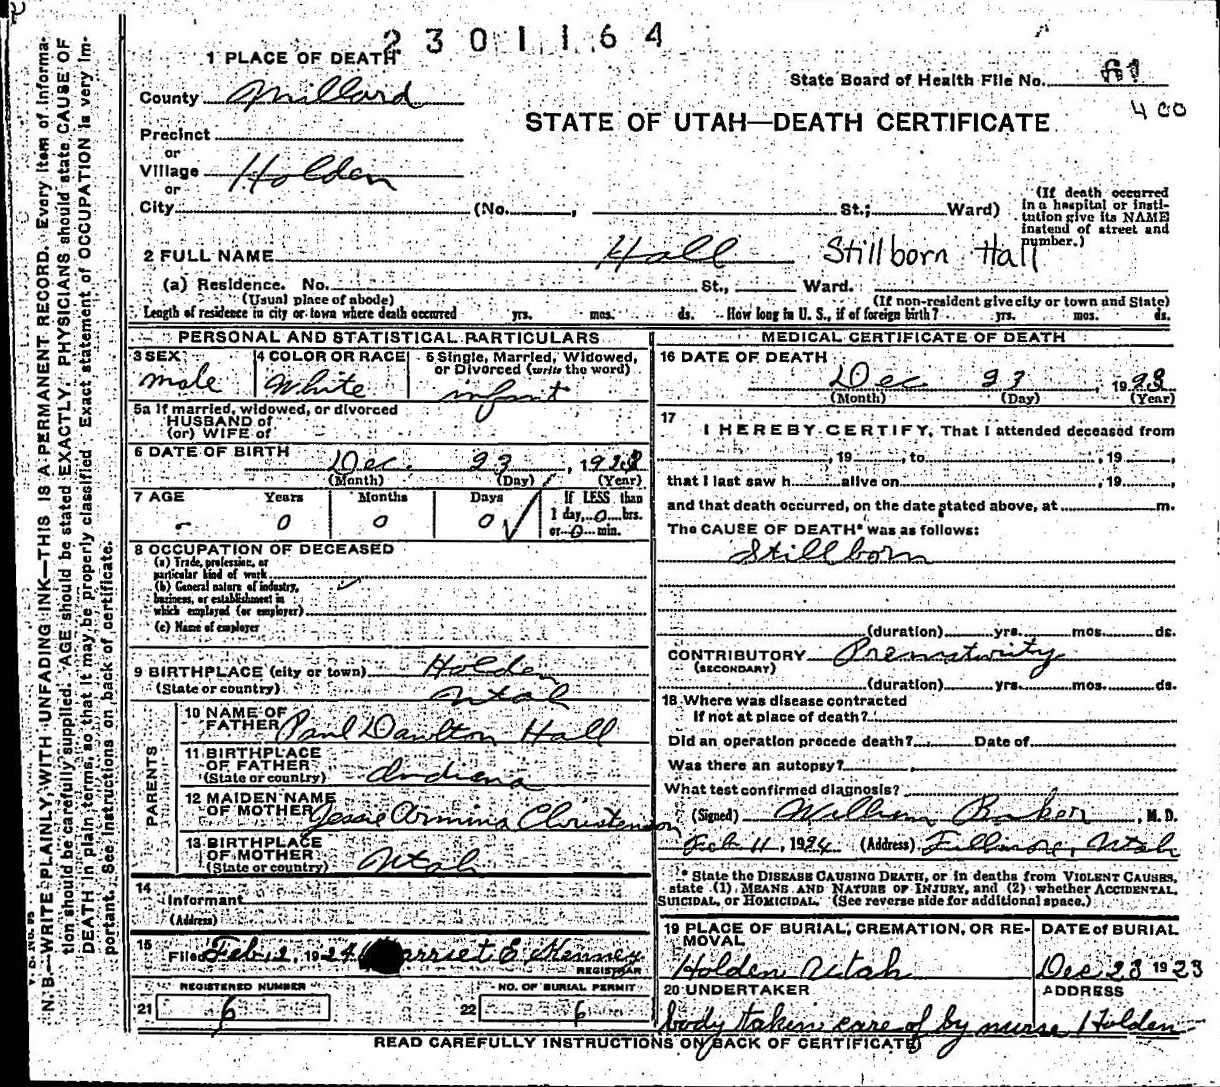 2301164
1 PLACE OF DEATH
State Board of Health File No. 61
400
County Millard
STATE OF UTAH—DEATH CERTIFICATE
Precinct
or
Village Holden
or
City (No. , St.; Ward)
(If death occurred in a hospital or institution give its NAME instead of street and number.)
2 FULL NAME Hall Stillborn Hall
(a) Residence. No. St., Ward.
(Usual place of abode) (If non-resident give city or town and State)
Length of residence in city or town where death occurred yrs. mos. ds. How long in U. S., if of foreign birth? yrs. mos. ds.
PERSONAL AND STATISTICAL PARTICULARS
3 SEX male
4 COLOR OR RACE White
5 Single, Married, Widowed, or Divorced (write the word) infant
5a If married, widowed, or divorced
HUSBAND of
(or) WIFE of
6 DATE OF BIRTH Dec. 23, 1923
(Month) (Day) (Year)
7 AGE Years 0 Months 0 Days 0 If LESS than 1 day, 0 hrs. or 0 min.
8 OCCUPATION OF DECEASED
(a) Trade, profession, or
particular kind of work
(b) General nature of industry,
business, or establishment in
which employed (or employer)
(c) Name of employer
9 BIRTHPLACE (city or town) Holden
(State or country) Utah
PARENTS
10 NAME OF FATHER Paul Dawlton Hall
11 BIRTHPLACE OF FATHER (State or country) Indiana
12 MAIDEN NAME OF MOTHER Jessie Armina Christensen
13 BIRTHPLACE OF MOTHER (State or country) Utah
14
Informant
(Address)
15
Filed Feb 12 1924 Harriet E Kenney
REGISTRAR
REGISTERED NUMBER NO. OF BURIAL PERMIT
21 6 22 6
MEDICAL CERTIFICATE OF DEATH
16 DATE OF DEATH
Dec 23, 1923
(Month) (Day) (Year)
17
I HEREBY CERTIFY, That I attended deceased from
, 19 , to , 19 ,
that I last saw h alive on , 19 ,
and that death occurred, on the date stated above, at m.
The CAUSE OF DEATH* was as follows:
Stillborn
(duration) yrs. mos. ds.
CONTRIBUTORY Prematurity
(SECONDARY)
(duration) yrs. mos. ds.
18 Where was disease contracted
If not at place of death?
Did an operation precede death? Date of
Was there an autopsy?
What test confirmed diagnosis?
(Signed) William Baker, M. D.
Feb 11, 1924 (Address) Fillmore, Utah
* State the DISEASE CAUSING DEATH, or in deaths from VIOLENT CAUSES,
state (1) MEANS AND NATURE OF INJURY, and (2) whether ACCIDENTAL,
SUICIDAL, or HOMICIDAL. (See reverse side for additional space.)
19 PLACE OF BURIAL, CREMATION, OR REMOVAL
Holden Utah
DATE of BURIAL
Dec 23 1923
20 UNDERTAKER ADDRESS
body taken care of by nurse Holden
READ CAREFULLY INSTRUCTIONS ON BACK OF CERTIFICATE
N. B.—WRITE PLAINLY WITH UNFADING INK—THIS IS A PERMANENT RECORD. Every item of informa-
tion should be carefully supplied. AGE should be stated EXACTLY. PHYSICIANS should state CAUSE OF
DEATH in plain terms, so that it may be properly classified. Exact statement of OCCUPATION is very im-
portant. See instructions on back of certificate.